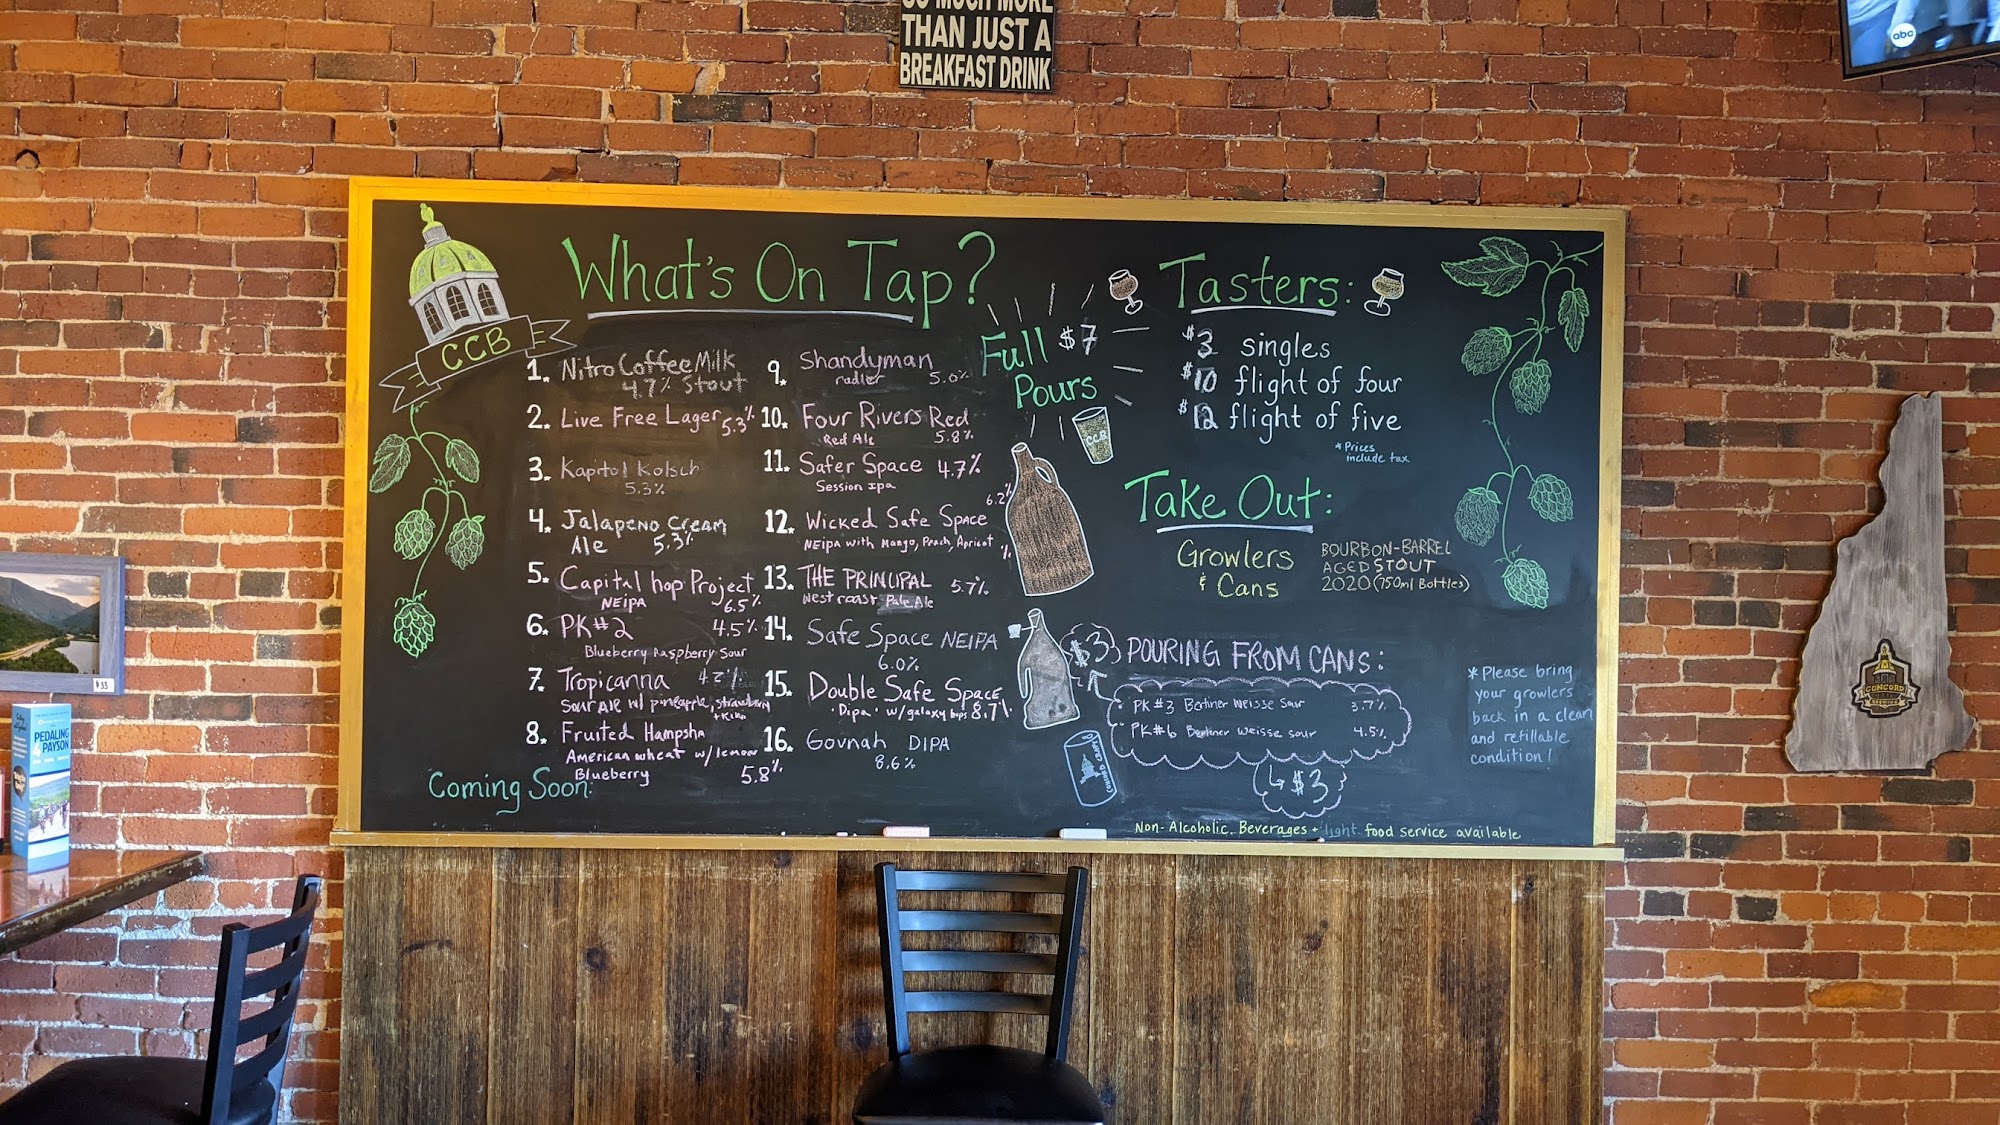 SO MUCH MORE
THAN JUST A
BREAKFAST DRINK
abc
CCB
What's On Tap?
1. Nitro Coffee Milk
4.7% Stout
2. Live Free Lager 5.3%
3. Kapitol Kolsch
5.3%
4. Jalapeno Cream
Ale 5.3%
5. Capital hop Project
NEIPA 6.5%
6. PK#2 4.5%
Blueberry Raspberry Sour
7. Tropicanna
Sour Ale w/ pineapple, strawberry
+ Kiwi
8. Fruited Hampsha
American wheat w/ lemon
Blueberry 5.8%
Coming Soon:
9. Shandyman
radler 5.0%
10. Four Rivers Red
Red Ale 5.8%
11. Safer Space 4.7%
Session Ipa
6.2%
12. Wicked Safe Space
NEIPA with Mango, Peach, Apricot %
13. THE PRINCIPAL 5.7%
West coast Pale Ale
14. Safe Space NEIPA
6.0%
15. Double Safe Space
Dipa w/ galaxy hops 8.7%
16. Govnah DIPA
8.6%
Full $7
Pours
CCB
Tasters:
$3 singles
$10 flight of four
$12 flight of five
* Prices
include tax
Take Out:
Growlers
& Cans
BOURBON-BARREL
AGED STOUT
2020 (750ml Bottles)
$3 POURING FROM CANS:
PK #3 Berliner Weisse Sour 3.7%
PK #6 Berliner Weisse sour 4.5%
$3
* Please bring
your growlers
back in a clean
and refillable
condition!
Non-Alcoholic Beverages + light food service available
CONCORD
BREWING
PEDALING
4
PAYSON
$35